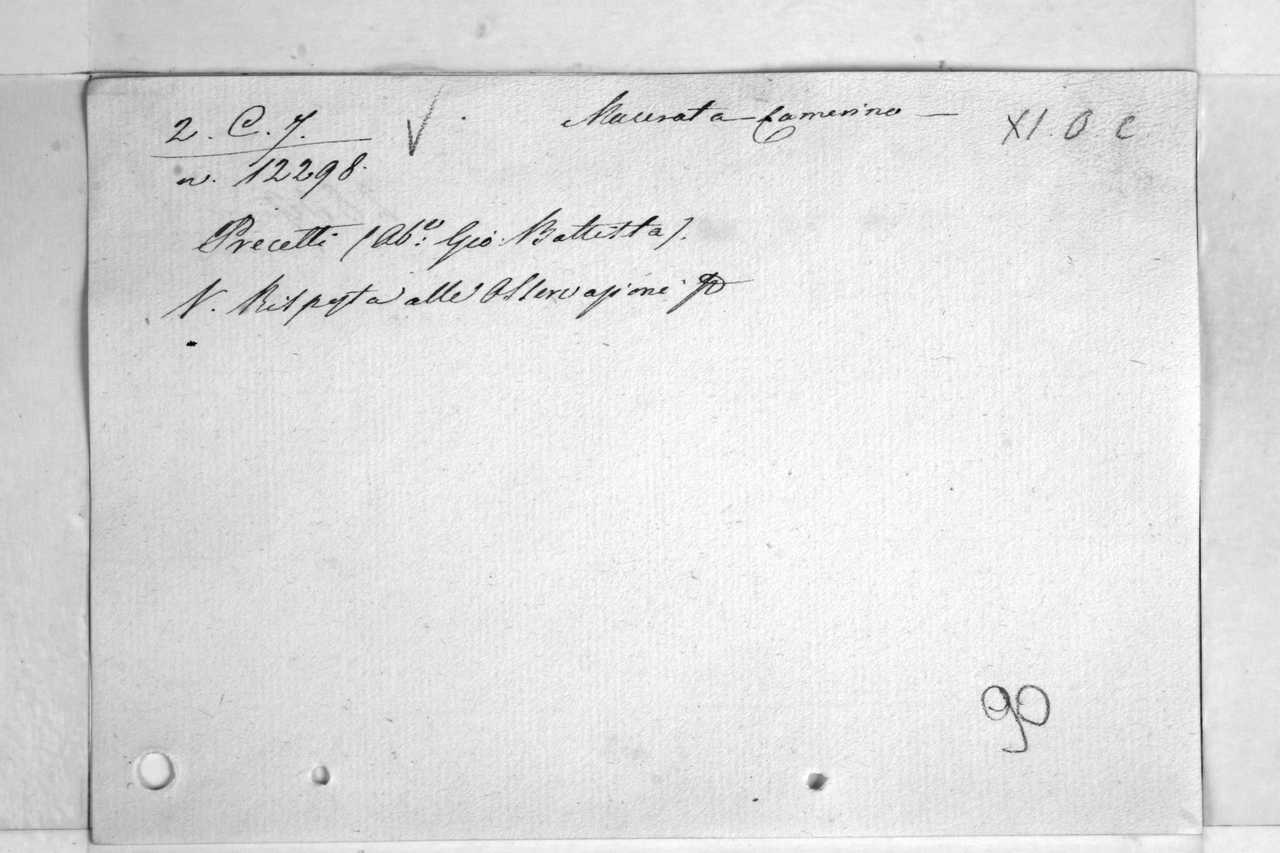 2. C. 7. Macerata - Camerino - XI O C
n. 12298.
Precetti (Ab.e Gio: Battista).
V. Risposta alle Osservazioni
90